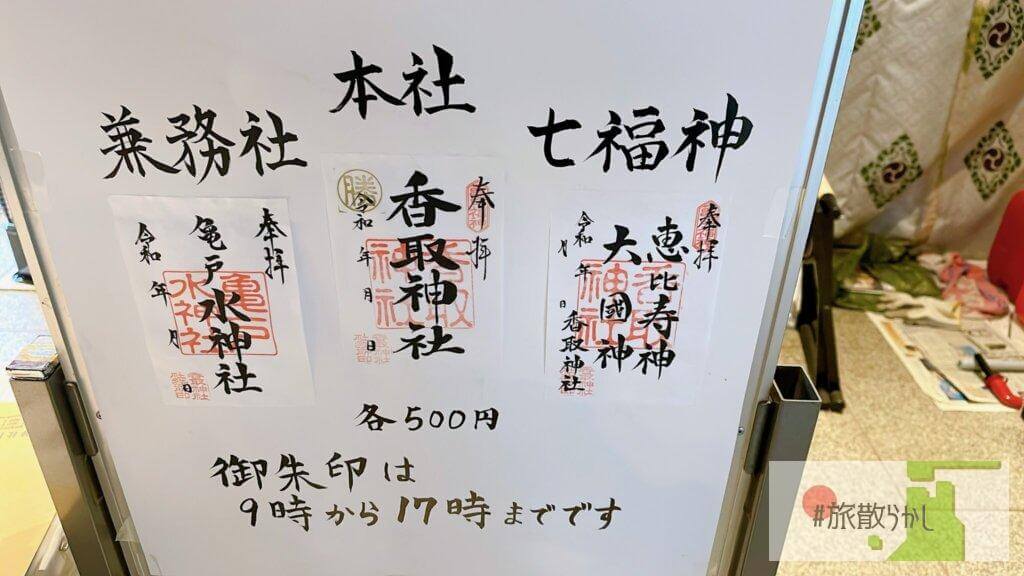 本社
兼務社
七福神
奉拝
亀戸水神社
令和 年 月 日
亀戸
水神社
奉拝
香取神社
勝
令和 年 月 日
香取
神社
奉拝
恵比寿神
大國神
令和 年 月 日 香取神社
香取
神社
各500円
御朱印は
9時から17時までです
#旅散らかし